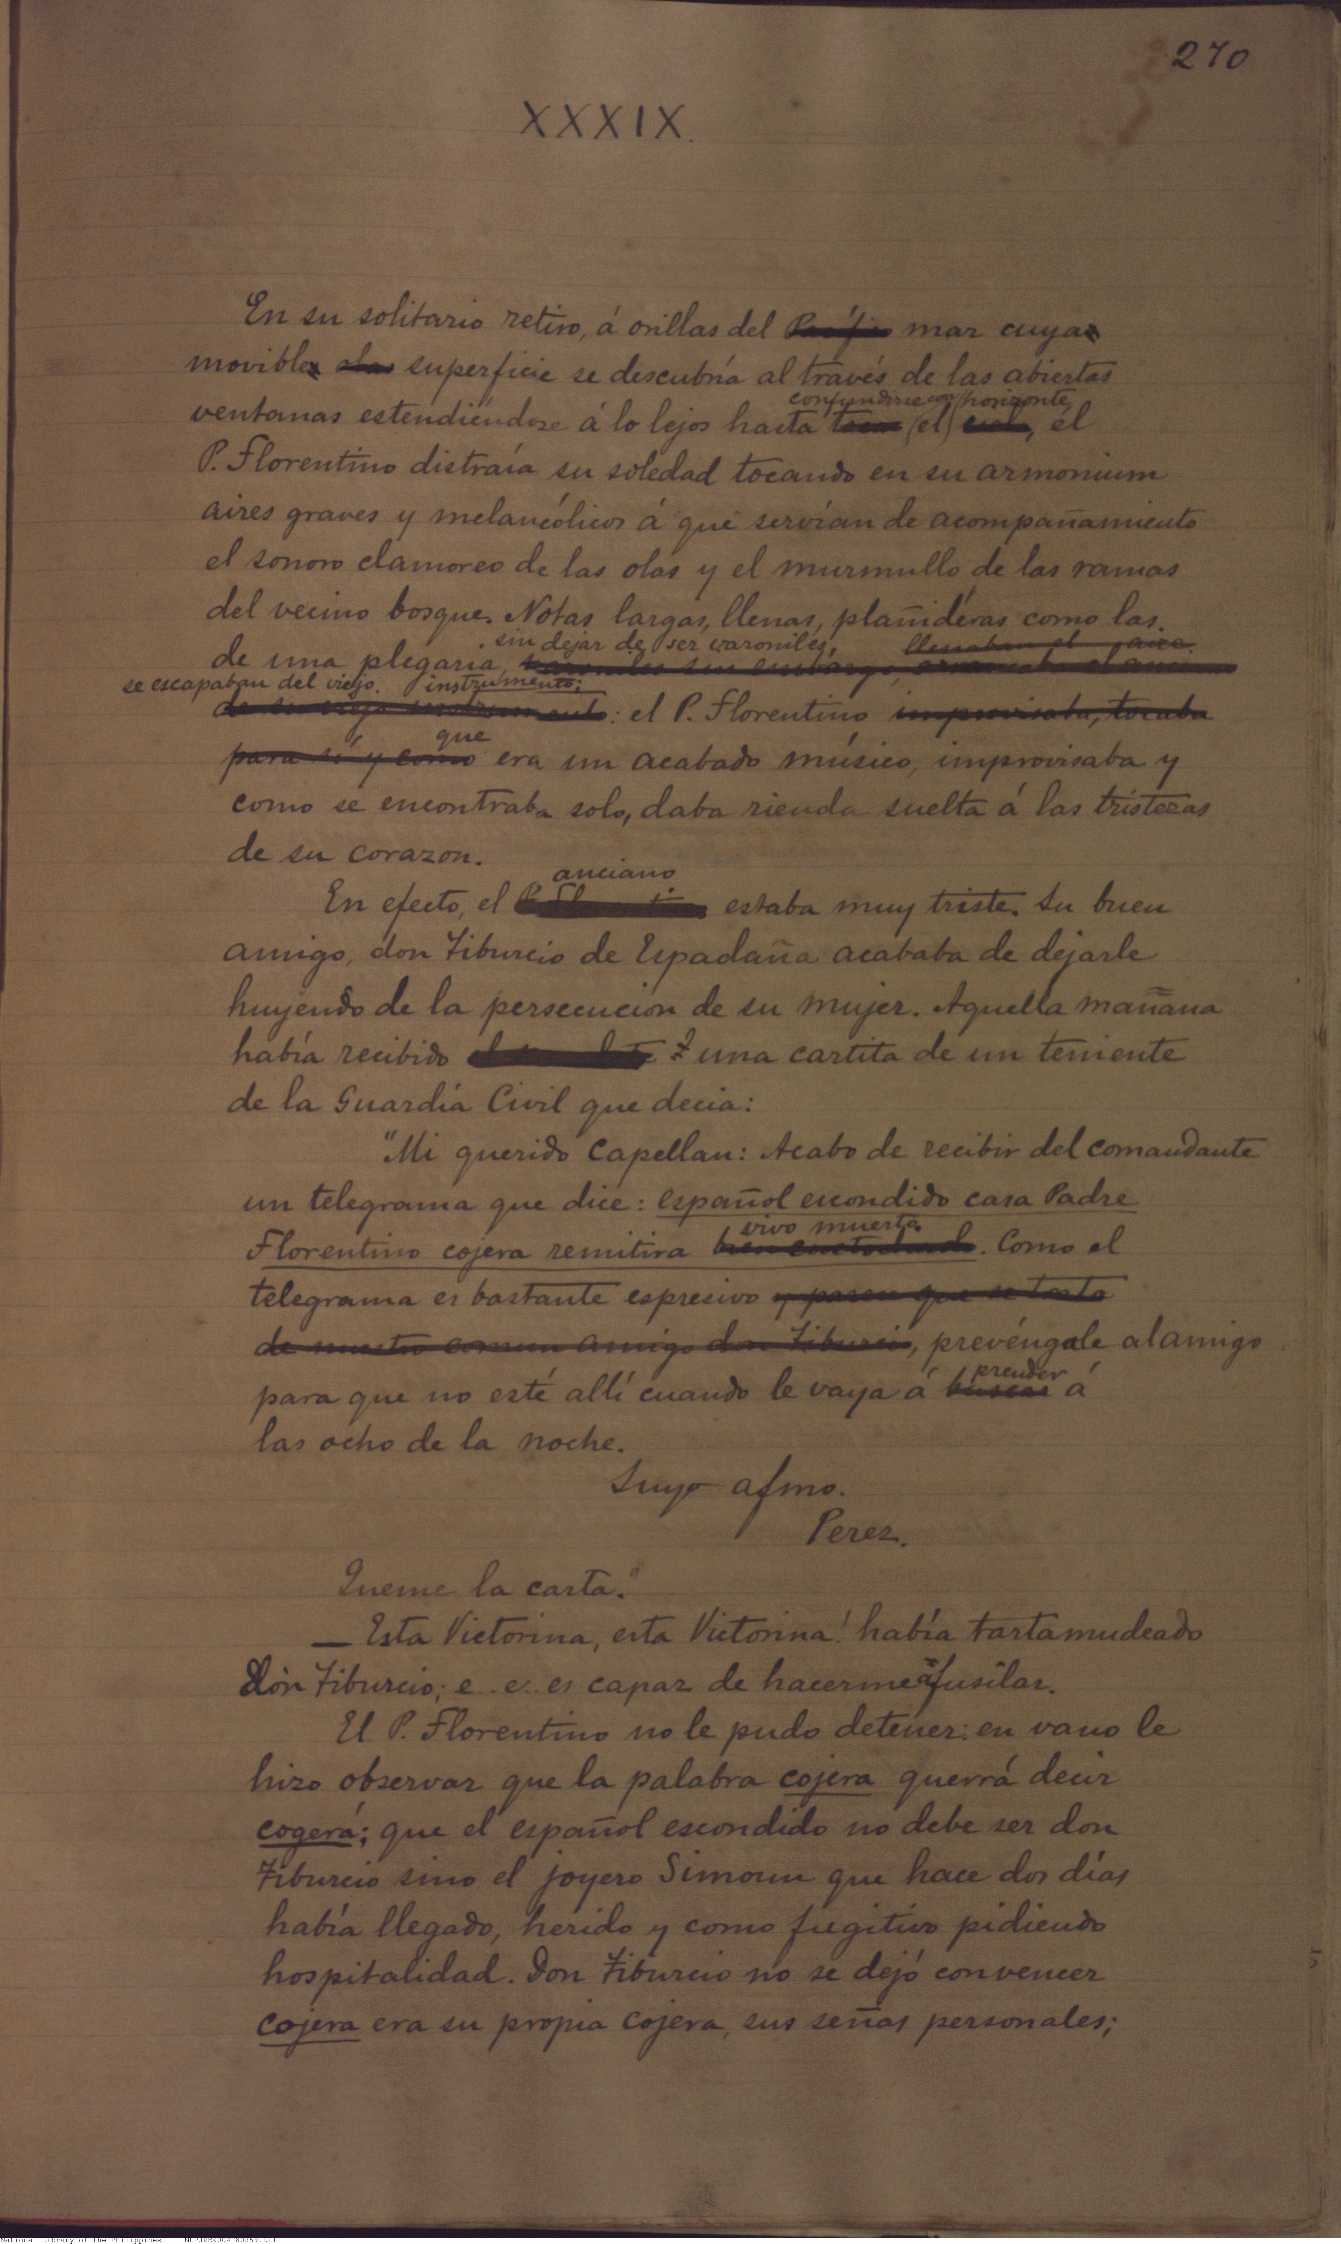 270
XXXIX.
En su solitario retiro, á orillas del mar cuya
movible olas superficie se descubría al través de las abiertas
confundirse con horizonte,
ventanas estendiéndose á lo lejos hasta tocar (el) cielo, el
P. Florentino distraía su soledad tocando en su armonium
aires graves y melancólicos á que servían de acompañamiento
el sonoro clamoreo de las olas y el murmullo de las ramas
del vecino bosque. Notas largas, llenas, plañideras como las
sin dejar de ser varoniles, llenaban el aire.
de una plegaria, varoniles sin embargo,
se escapaban del viejo instrumento;
de su viejo instrumento: el P. Florentino improvisaba, tocaba
que
para sí y como era un acabado músico, improvisaba y
como se encontraba solo, daba rienda suelta á las tristezas
de su corazon.
anciano
En efecto, el P. Florentino estaba muy triste. Su buen
amigo, don Tiburcio de Espadaña acababa de dejarle
huyendo de la persecucion de su mujer. Aquella mañana
había recibido una cartita de un teniente
de la Guardia Civil que decia:
"Mi querido Capellan: Acabo de recibir del comandante
un telegrama que dice: español escondido casa Padre
vivo muerto
Florentino cojera remitira bien custodiado. Como el
telegrama es bastante espresivo y parece que se trata
de nuestro comun amigo don Tiburcio, prevéngale al amigo
prender
para que no esté allí cuando le vaya á buscar á
las ocho de la noche.
Suyo afmo.
Perez.
Queme la carta."
— Esta Victorina, esta Victorina! había tartamudeado
don Tiburcio; e.. e.. es capaz de hacerme afusilar.
El P. Florentino no le pudo detener: en vano le
hizo observar que la palabra cojera querrá decir
cogerá; que el español escondido no debe ser don
Tiburcio sino el joyero Simoun que hace dos días
había llegado, herido y como fugitivo pidiendo
hospitalidad. Don Tiburcio no se dejó convencer
cojera era su propia cojera, sus señas personales;